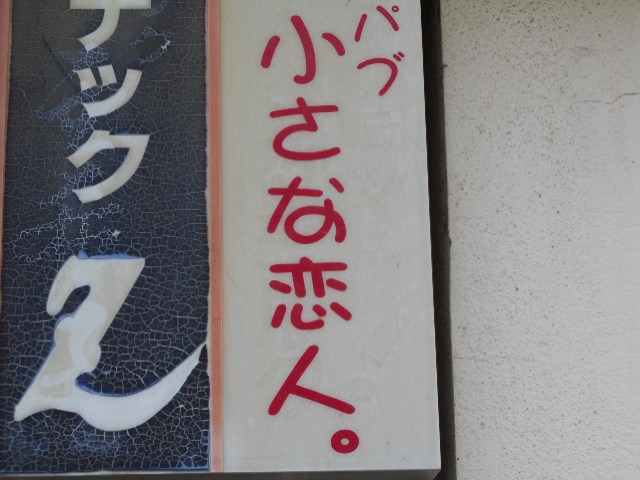 パブ
小さな恋人。
ナック